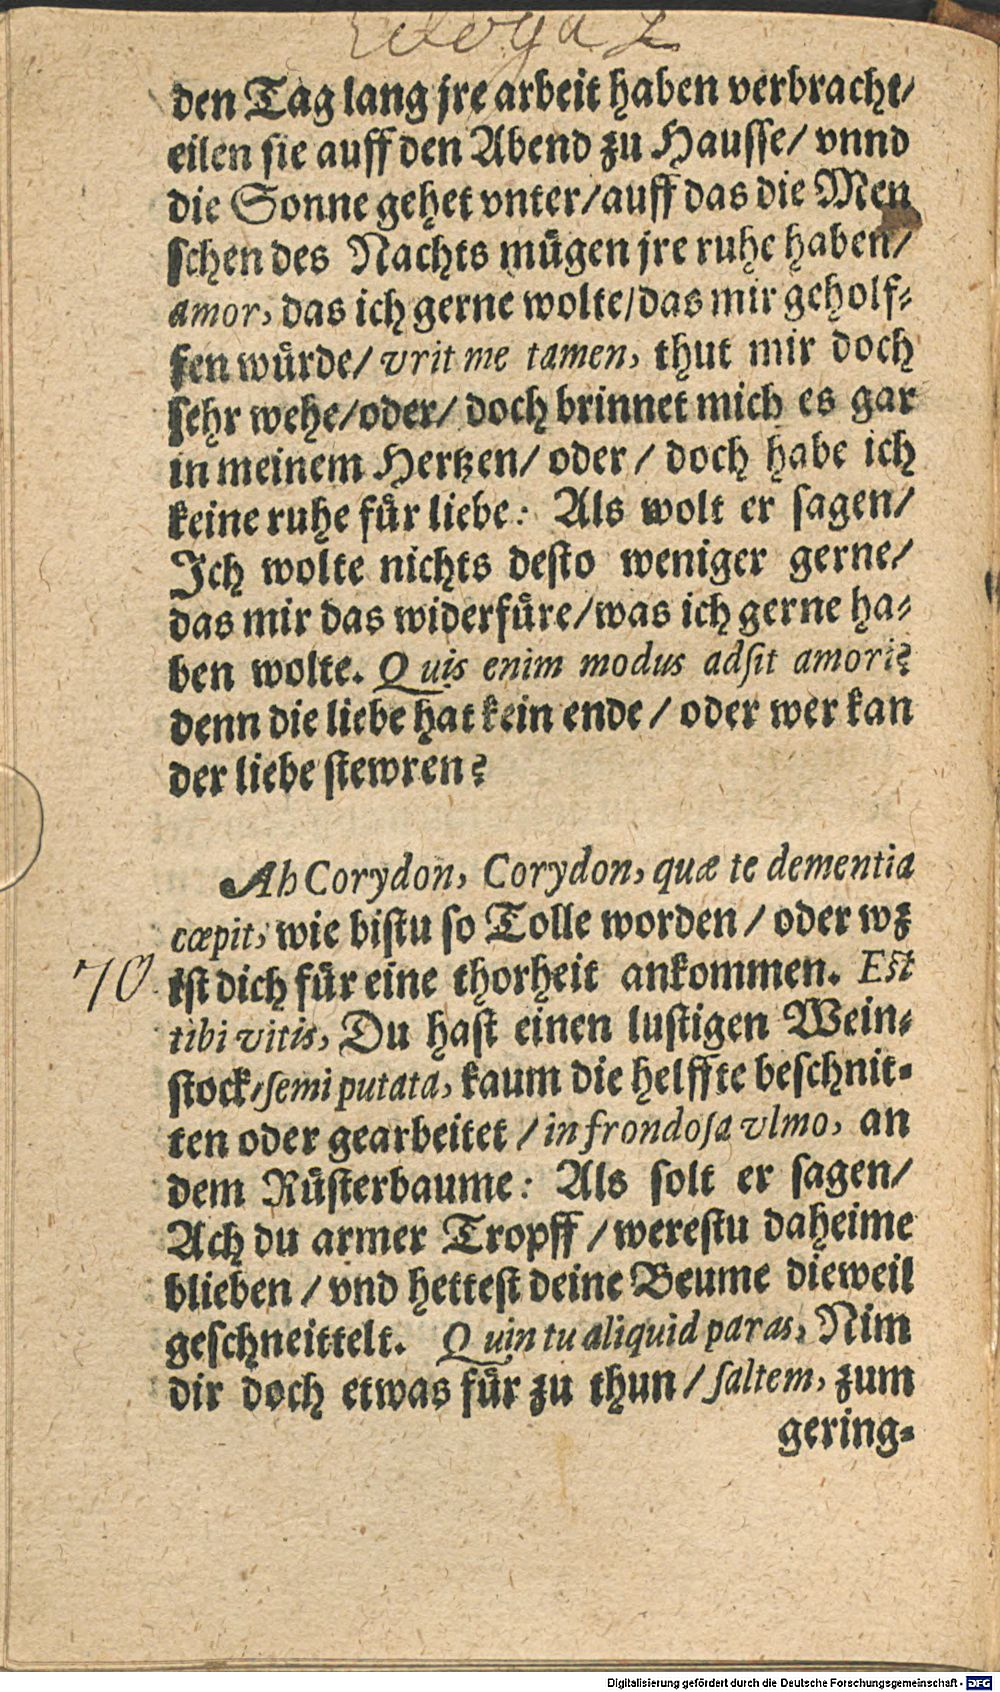 Ecloga 2
den Tag lang jre arbeit haben verbracht/
eilen sie auff den Abend zu Hausse/ vnnd
die Sonne gehet vnter/ auff das die Men
schen des Nachts mügen jre ruhe haben/
amor, das ich gerne wolte/ das mir geholf⸗
fen würde/ vrit me tamen, thut mir doch
sehr wehe/ oder/ doch brinnet mich es gar
in meinem Hertzen/ oder/ doch habe ich
keine ruhe für liebe: Als wolt er sagen/
Ich wolte nichts desto weniger gerne/
das mir das widerfüre/ was ich gerne ha⸗
ben wolte. Quis enim modus adſit amori?
denn die liebe hat kein ende/ oder wer kan
der liebe stewren?
Ah Corydon, Corydon, quæ te dementia
cœpit, wie bistu so Tolle worden/ oder wz
70 ist dich für eine thorheit ankommen. Est
tibi vitis, Du hast einen lustigen Wein⸗
stock/ ſemiputata, kaum die helffte beschnit⸗
ten oder gearbeitet/ in frondoſa vlmo, an
dem Rüsterbaume: Als solt er sagen/
Ach du armer Tropff/ werestu daheime
blieben/ vnd hettest deine Beume dieweil
geschneittelt. Quin tu aliquid paras, Nim
dir doch etwas für zu thun/ ſaltem, zum
gering⸗
Digitalisierung gefördert durch die Deutsche Forschungsgemeinschaft - DFG